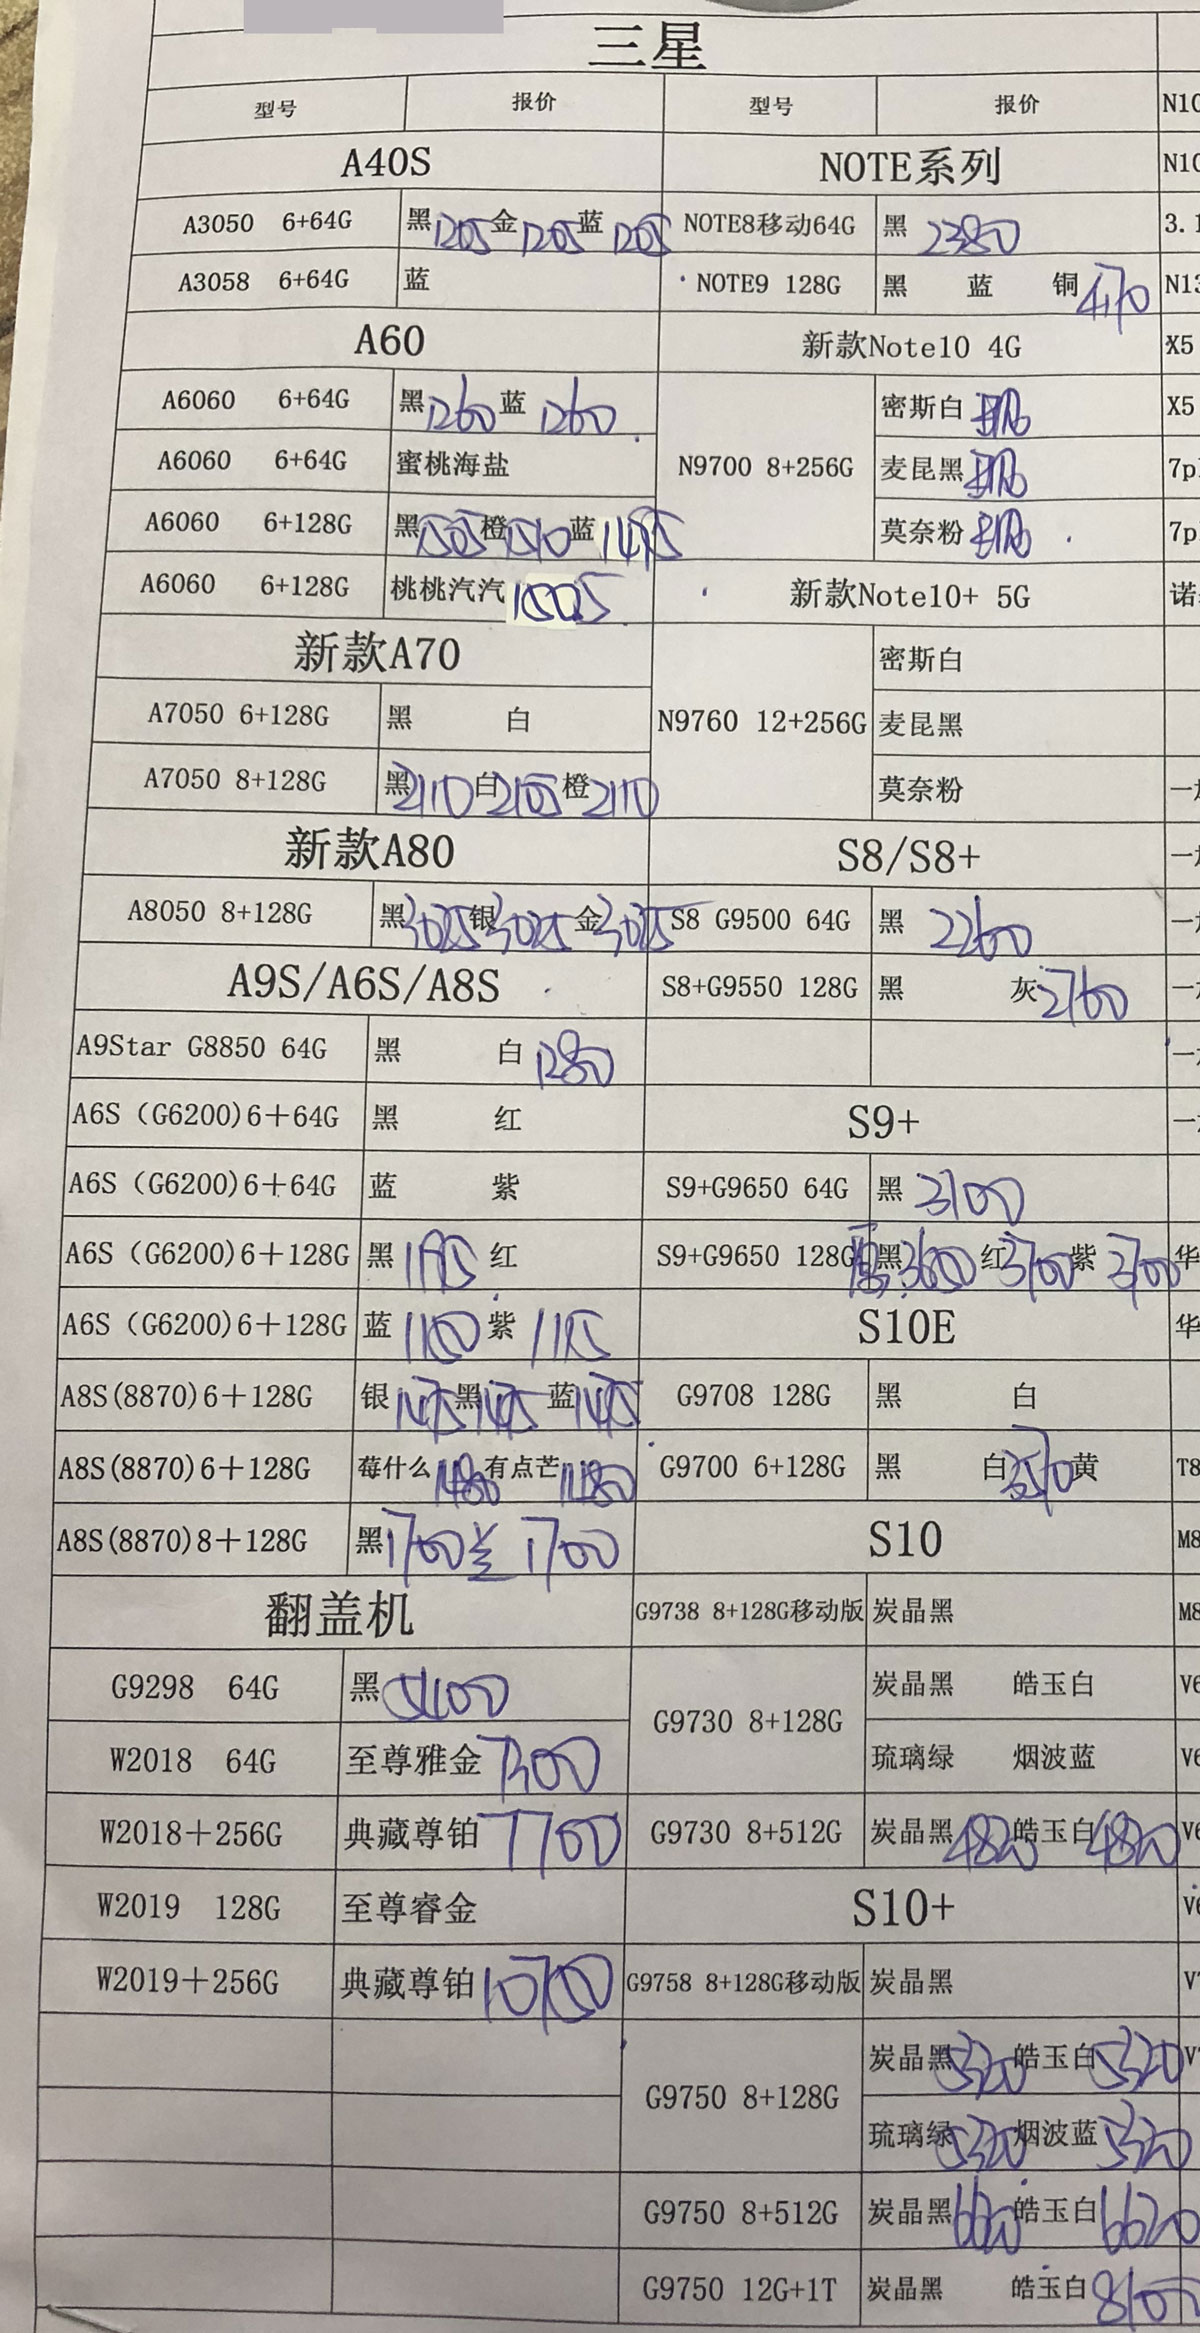 三星
型号 报价 型号 报价 N10
A40S NOTE系列 N10
A3050 6+64G 黑 1205 金 1205 蓝 1205 NOTE8移动64G 黑 2380 3.1
A3058 6+64G 蓝 NOTE9 128G 黑 蓝 铜 4170 N13
A60 新款Note10 4G X5
A6060 6+64G 黑 1260 蓝 1260 N9700 8+256G 密斯白 X5
A6060 6+64G 蜜桃海盐 麦昆黑 7p
A6060 6+128G 黑 1505 橙 1510 蓝 1495 莫奈粉 7p
A6060 6+128G 桃桃汽汽 1505 新款Note10+ 5G 诺
新款A70 N9760 12+256G 密斯白
A7050 6+128G 黑 白 麦昆黑
A7050 8+128G 黑 2110 白 2105 橙 2110 莫奈粉 一
新款A80 S8/S8+ 一
A8050 8+128G 黑 3025 银 3025 金 3025 S8 G9500 64G 黑 2260 一
A9S/A6S/A8S S8+G9550 128G 黑 灰 2760 一
A9Star G8850 64G 黑 白 1280 一
A6S（G6200)6＋64G 黑 红 S9+ 一
A6S（G6200)6＋64G 蓝 紫 S9+G9650 64G 黑 3100
A6S（G6200)6＋128G 黑 1195 红 S9+G9650 128G 黑 3650 红 3700 紫 3700 华
A6S（G6200)6＋128G 蓝 1180 紫 1195 S10E 华
A8S(8870)6＋128G 银 1475 黑 1475 蓝 1475 G9708 128G 黑 白
A8S(8870)6＋128G 莓什么 1480 有点芒 1480 G9700 6+128G 黑 白 3570 黄 T8
A8S(8870)8＋128G 黑 1700 1700 S10 M8
翻盖机 G9738 8+128G移动版 炭晶黑 M8
G9298 64G 黑 5400 G9730 8+128G 炭晶黑 皓玉白 V6
W2018 64G 至尊雅金 7300 琉璃绿 烟波蓝 V6
W2018＋256G 典藏尊铂 7700 G9730 8+512G 炭晶黑 4820 皓玉白 4820 V6
W2019 128G 至尊睿金 S10+ V6
W2019＋256G 典藏尊铂 10700 G9758 8+128G移动版 炭晶黑 V7
G9750 8+128G 炭晶黑 5320 皓玉白 5320 V7
琉璃绿 5320 烟波蓝 5320
G9750 8+512G 炭晶黑 6620 皓玉白 6620
G9750 12G+1T 炭晶黑 皓玉白 8100